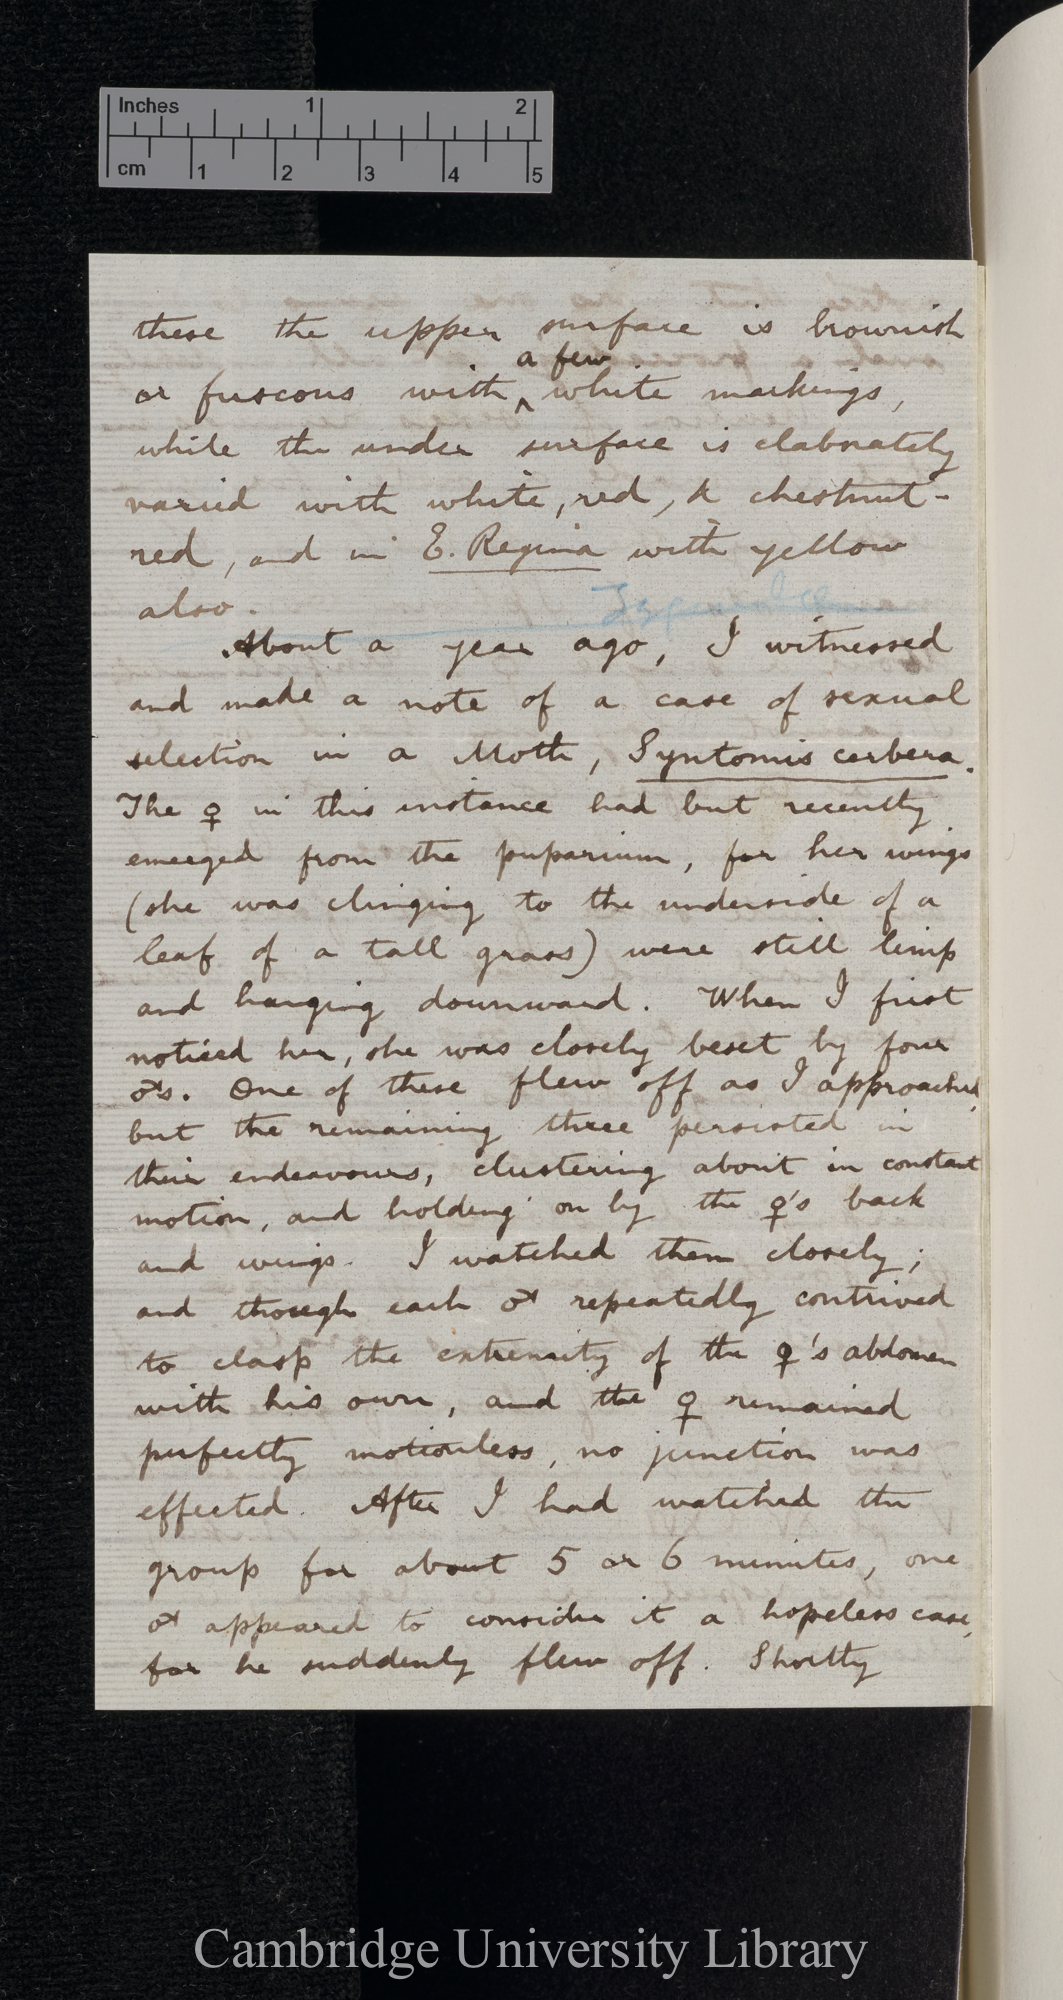 Inches 1 2
cm 1 2 3 4 5
these the upper surface is brownish
a few
or fuscous with ^ white markings,
while the under surface is elaborately
varied with white, red, & chestnut-
red, and in E. Regina with yellow
also.
About a year ago, I witnessed
and made a note of a case of sexual
selection in a Moth, Syntomis cerbera.
The ♀ in this instance had but recently
emerged from the puparium, for her wings
(she was clinging to the underside of a
leaf of a tall grass) were still limp
and hanging downward. When I first
noticed her, she was closely beset by four
♂s. One of these flew off as I approached,
but the remaining three persisted in
their endeavours, clustering about in constant
motion, and holding on by the ♀'s back
and wings. I watched them closely;
and though each ♂ repeatedly contrived
to clasp the extremity of the ♀'s abdomen
with his own, and the ♀ remained
perfectly motionless, no junction was
effected. After I had watched the
group for about 5 or 6 minutes, one
♂ appeared to consider it a hopeless case,
for he suddenly flew off. Shortly
Cambridge University Library